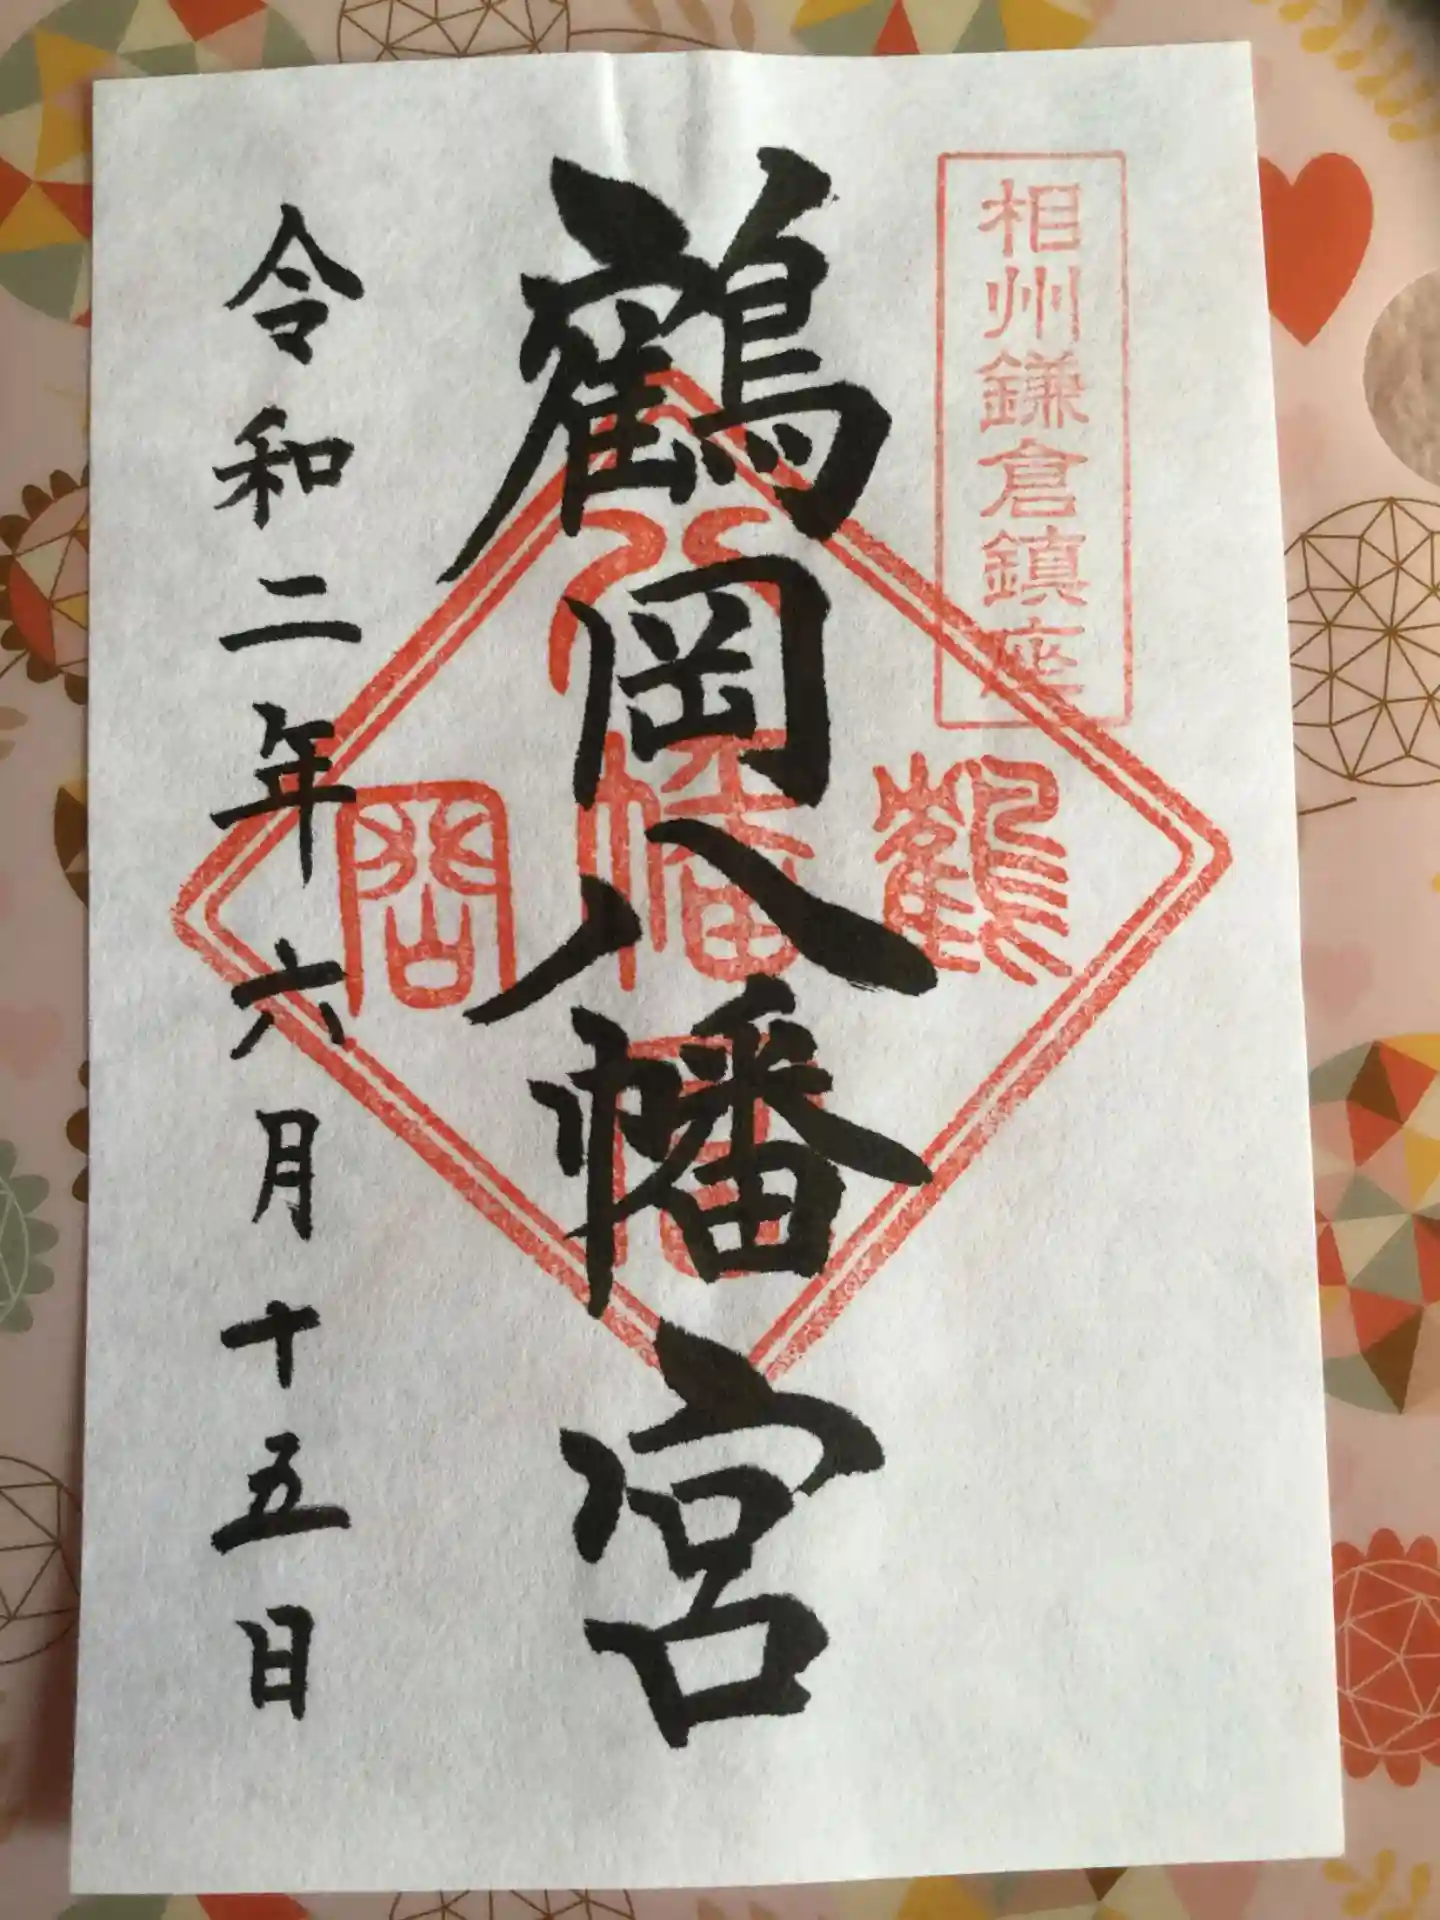 相州鎌倉鎮座
鶴岡八幡宮
令和二年六月十五日
八
鶴幡岡
宮